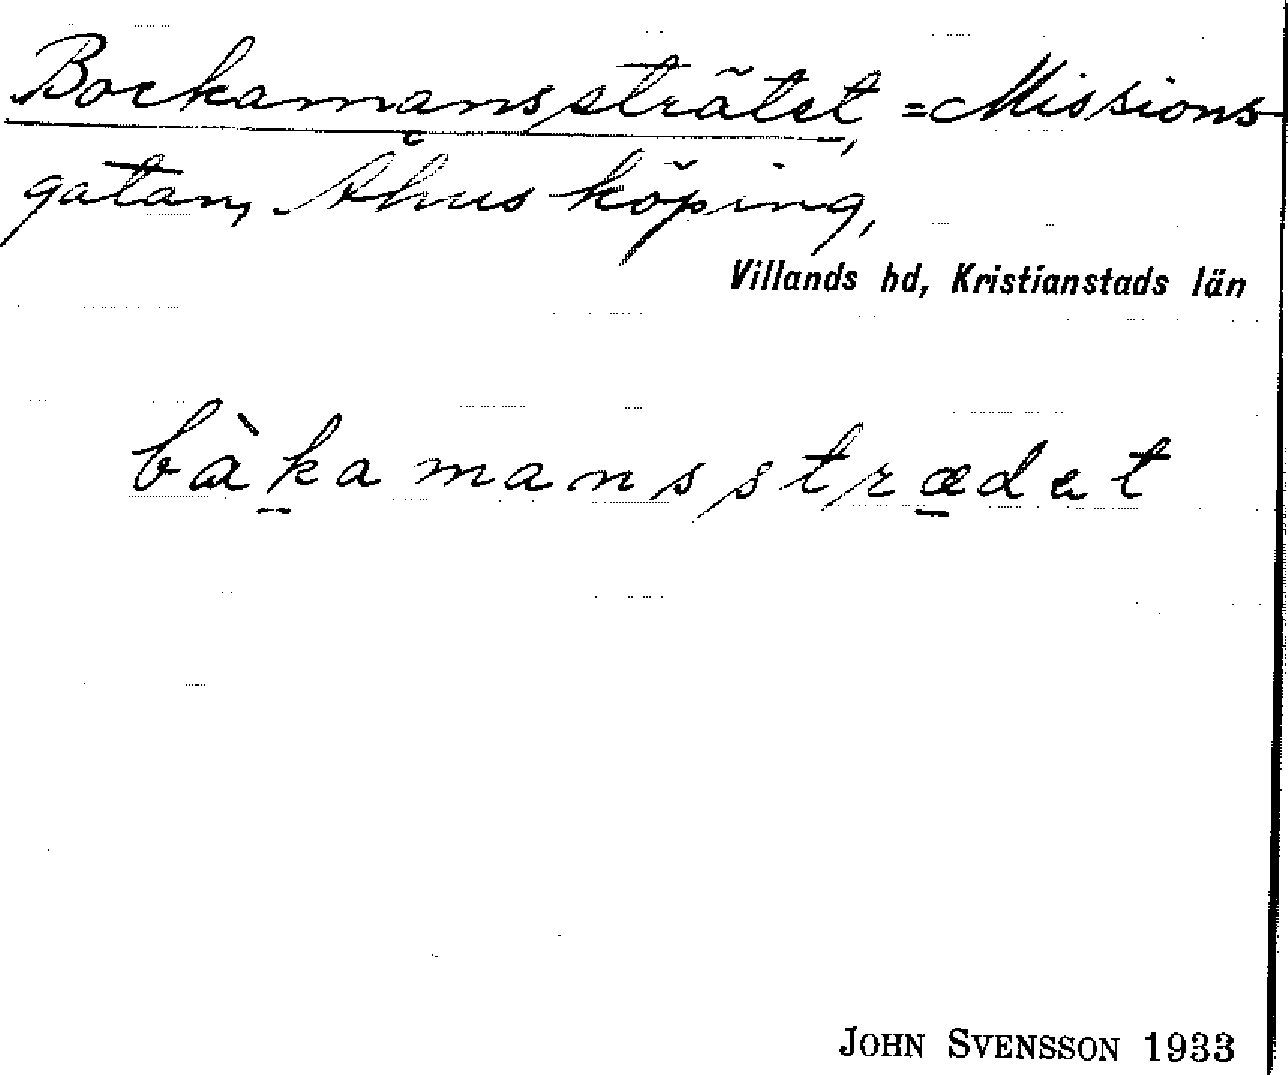 Bockamanssträtet, = Missions-
gatan, Åhus köping,
Villands hd, Kristianstads län
bàkamansstrædet
JOHN SVENSSON 1933